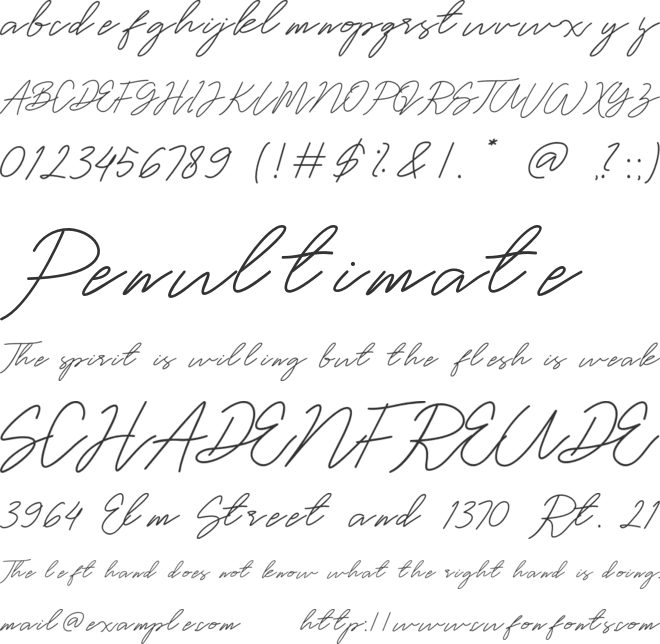 abcdefghijklmnopqrstuvwxyz
ABCDEFGHIJKLMNOPQRSTUVWXYZ
0123456789 (!#$%&/. * @ ,?:;)
Penultimate
The spirit is willing but the flesh is weak
SCHADENFREUDE
3964 Elm Street and 1370 Rt. 21
The left hand does not know what the right hand is doing.
mail@example.com http://www.cufonfonts.com